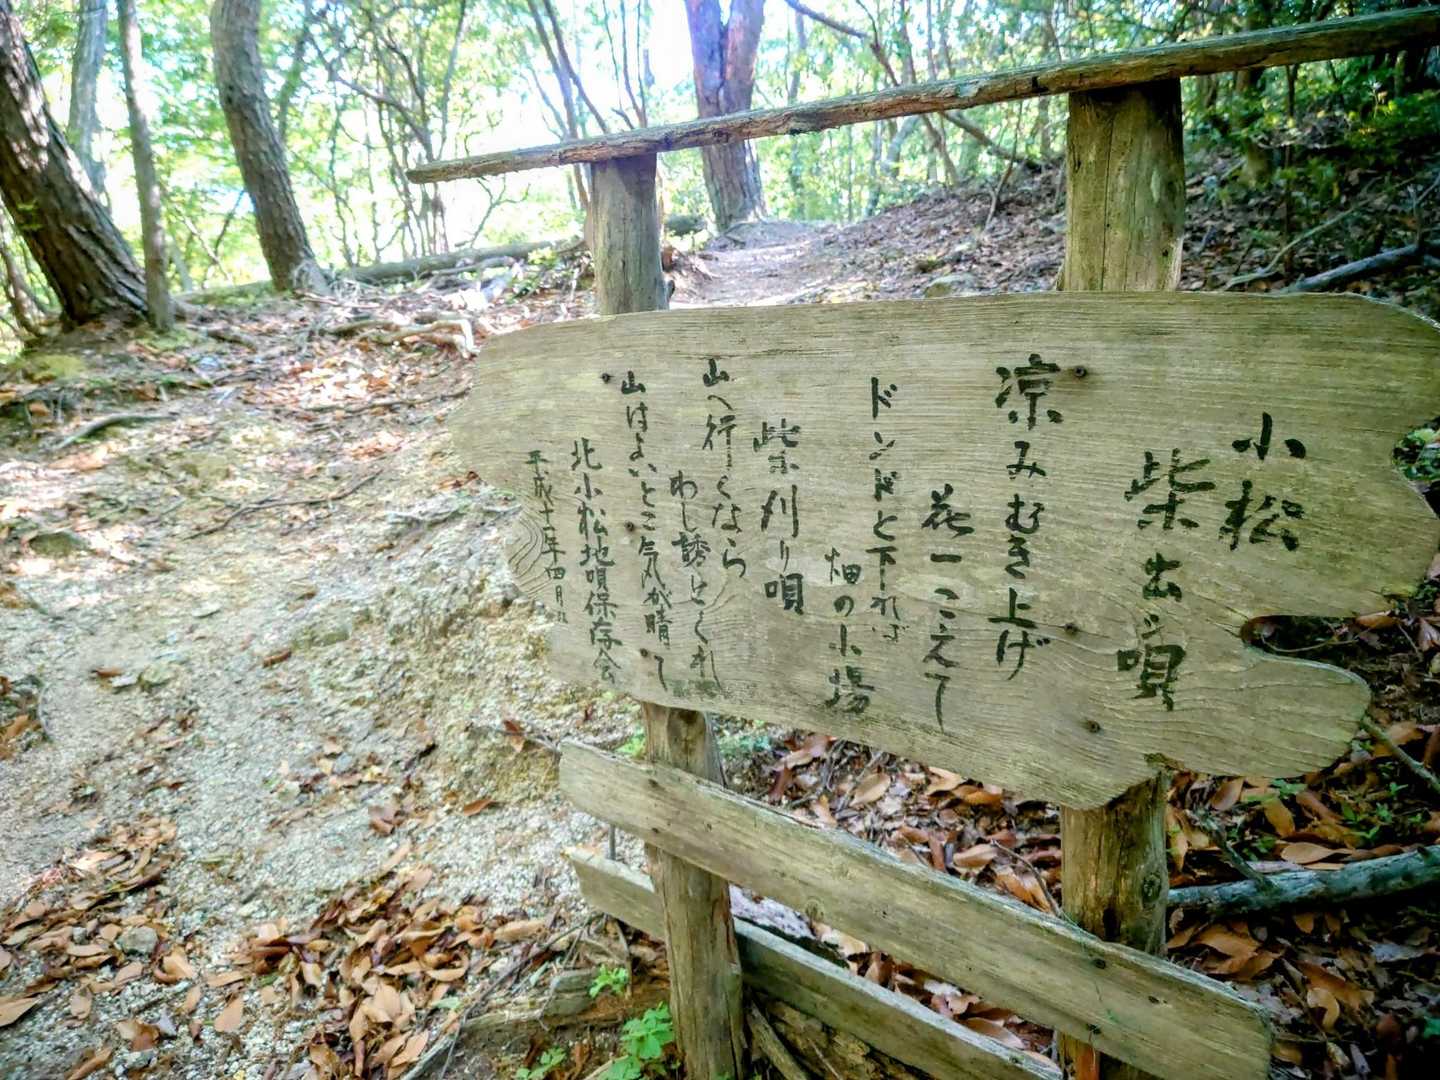 小松
柴出し唄
涼みむき上げ
花一つこえて
ドンドと下れば
畑の小場
柴刈り唄
山へ行くなら
わし誘とくれ
山はよいとこ気が晴て
北小松地唄保存会
平成十一年四月